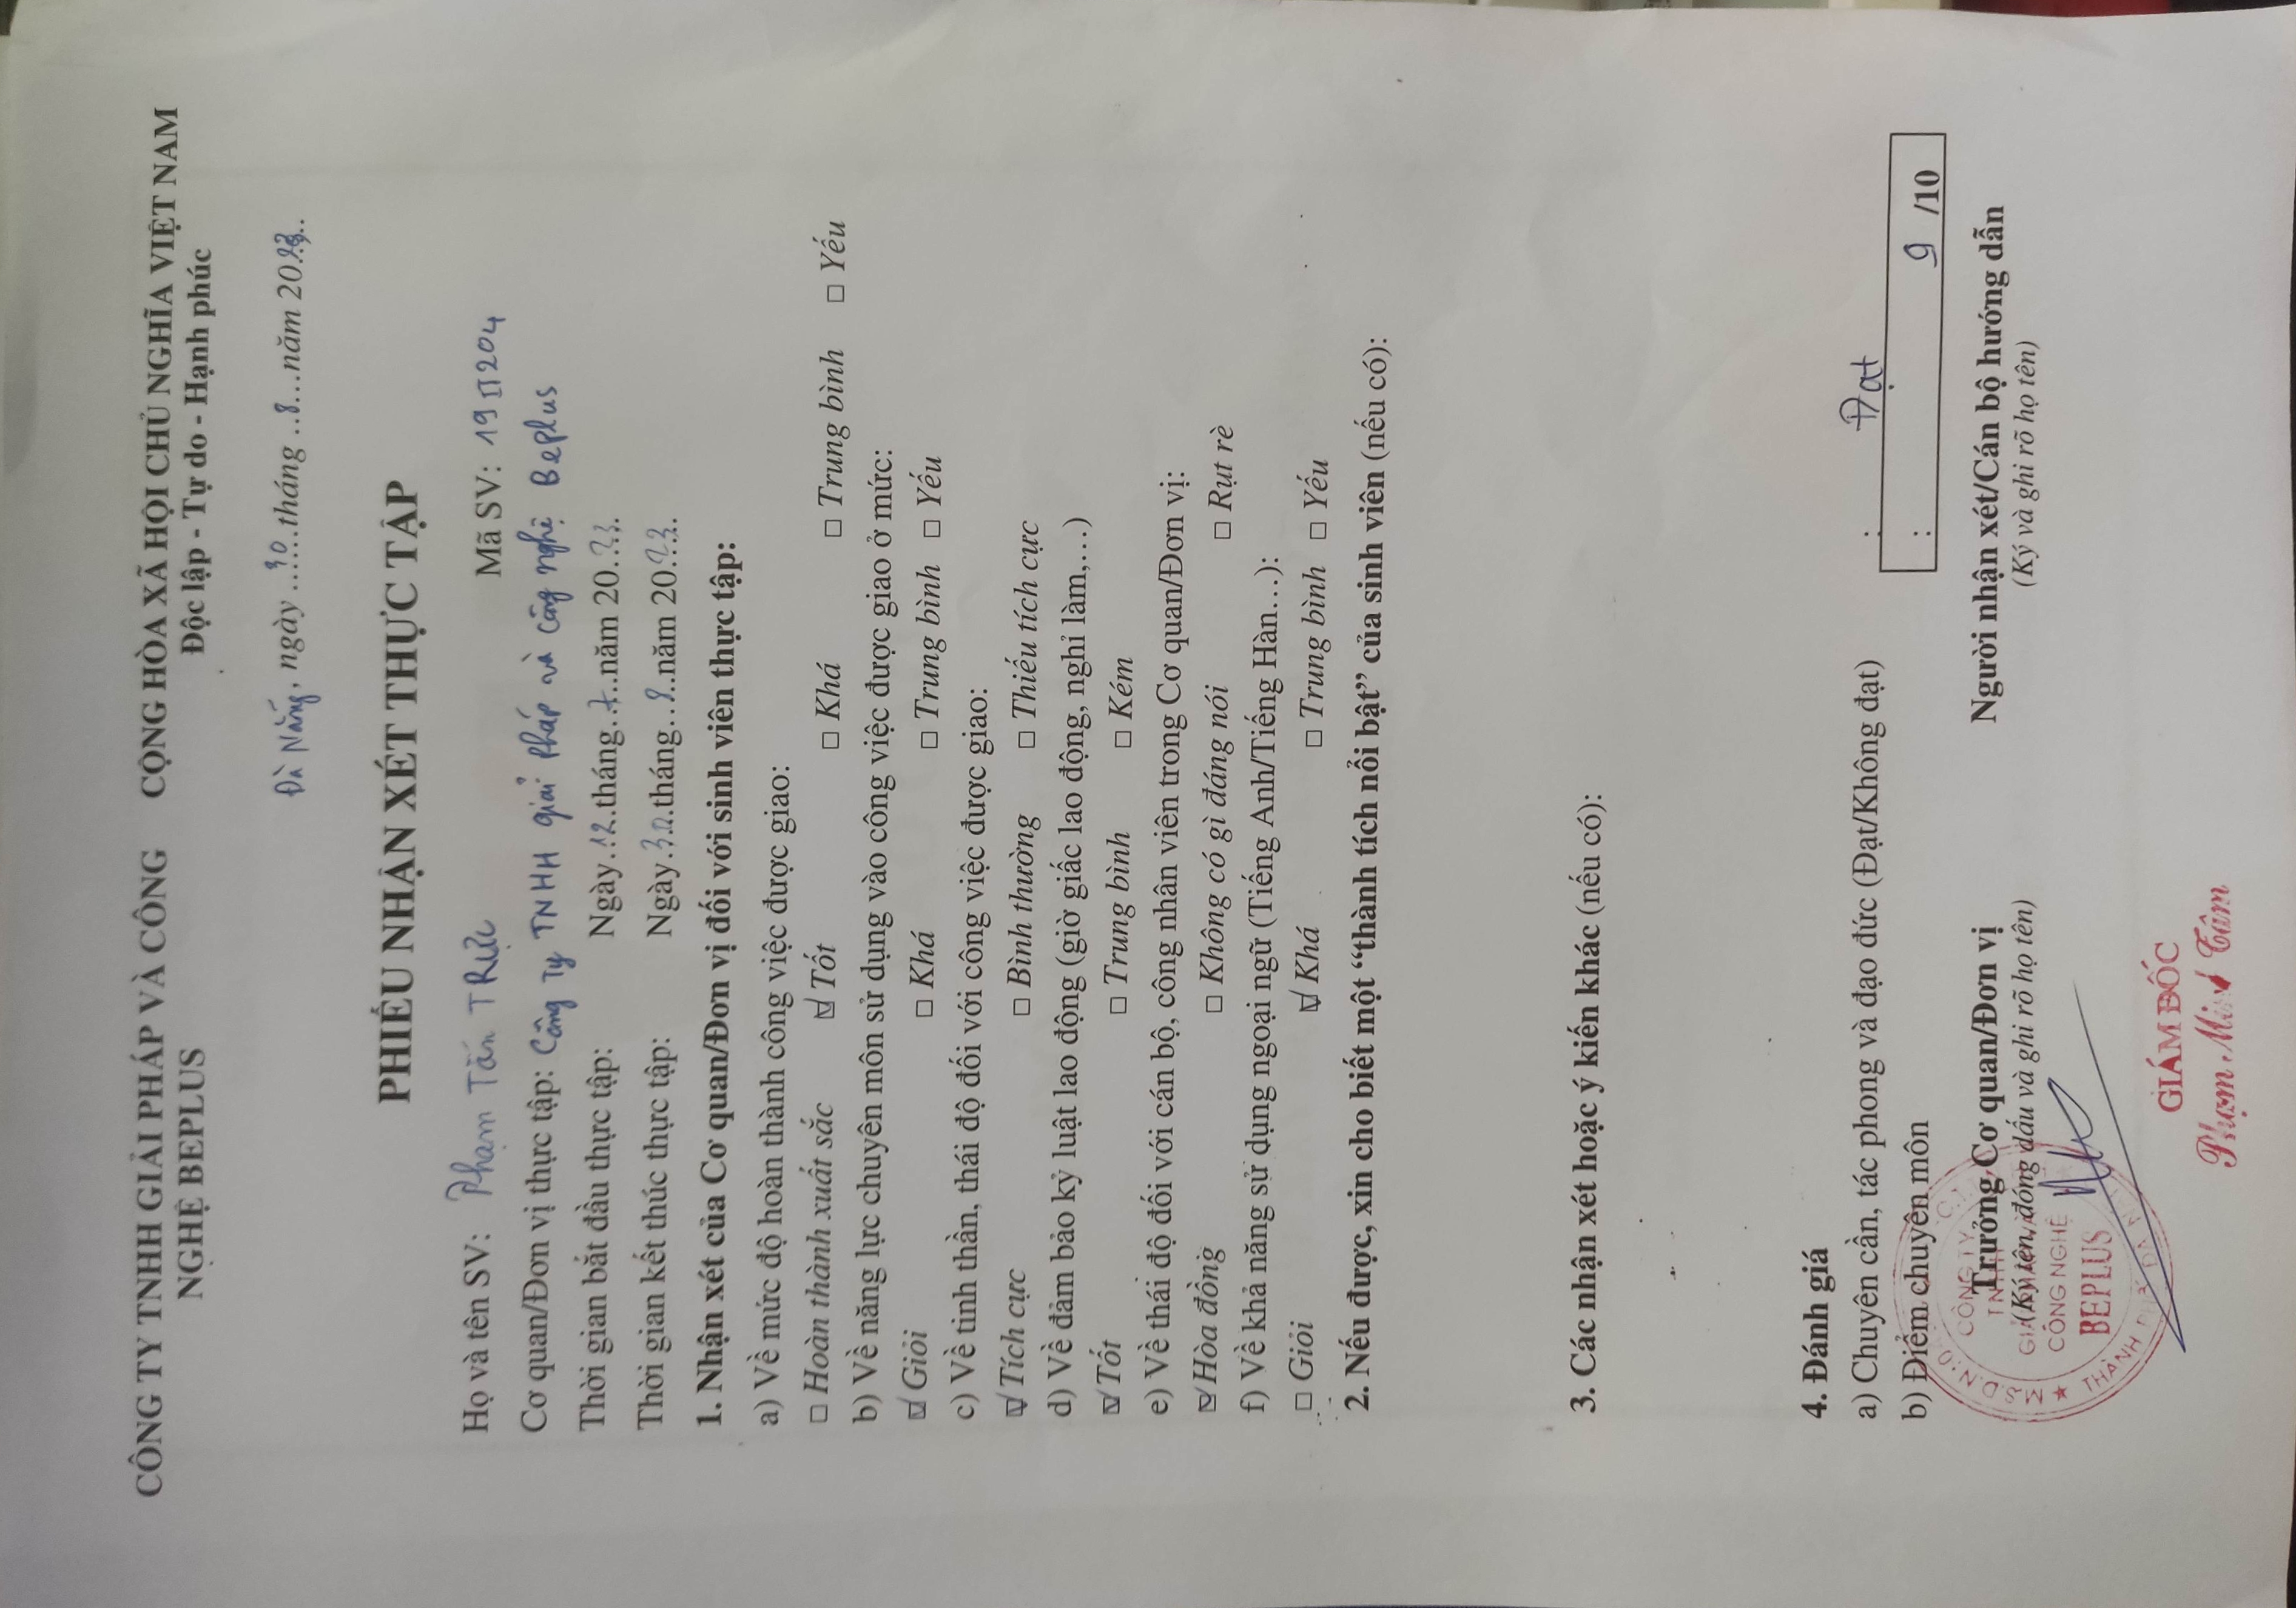 CÔNG TY TNHH GIẢI PHÁP VÀ CÔNG NGHỆ BEPLUS
CỘNG HÒA XÃ HỘI CHỦ NGHĨA VIỆT NAM
Độc lập - Tự do - Hạnh phúc
Đà Nẵng, ngày ..30..tháng ..8...năm 2023..
PHIẾU NHẬN XÉT THỰC TẬP
Họ và tên SV: Phạm Tấn TRực Mã SV: 19IT204
Cơ quan/Đơn vị thực tập: Công Ty TNHH giải Pháp và công nghệ Beplus
Thời gian bắt đầu thực tập: Ngày..12..tháng..7..năm 20.23.
Thời gian kết thúc thực tập: Ngày..30..tháng..8..năm 20.23.
1. Nhận xét của Cơ quan/Đơn vị đối với sinh viên thực tập:
a) Về mức độ hoàn thành công việc được giao:
☐ Hoàn thành xuất sắc ☑ Tốt ☐ Khá ☐ Trung bình ☐ Yếu
b) Về năng lực chuyên môn sử dụng vào công việc được giao ở mức:
☑ Giỏi ☐ Khá ☐ Trung bình ☐ Yếu
c) Về tinh thần, thái độ đối với công việc được giao:
☑ Tích cực ☐ Bình thường ☐ Thiếu tích cực
d) Về đảm bảo kỷ luật lao động (giờ giấc lao động, nghỉ làm,…)
☑ Tốt ☐ Trung bình ☐ Kém
e) Về thái độ đối với cán bộ, công nhân viên trong Cơ quan/Đơn vị:
☑ Hòa đồng ☐ Không có gì đáng nói ☐ Rụt rè
f) Về khả năng sử dụng ngoại ngữ (Tiếng Anh/Tiếng Hàn…):
☐ Giỏi ☑ Khá ☐ Trung bình ☐ Yếu
2. Nếu được, xin cho biết một “thành tích nổi bật” của sinh viên (nếu có):
3. Các nhận xét hoặc ý kiến khác (nếu có):
4. Đánh giá
a) Chuyên cần, tác phong và đạo đức (Đạt/Không đạt) : Đạt
b) Điểm chuyên môn : 9 /10
Trưởng Cơ quan/Đơn vị
(Ký tên, đóng dấu và ghi rõ họ tên)
Người nhận xét/Cán bộ hướng dẫn
(Ký và ghi rõ họ tên)
M.S.D.N:
CÔNG TY
TNHH
GIẢI PHÁP VÀ
CÔNG NGHỆ
BEPLUS
THÀNH PHỐ ĐÀ
GIÁM ĐỐC
Phạm Minh Tâm